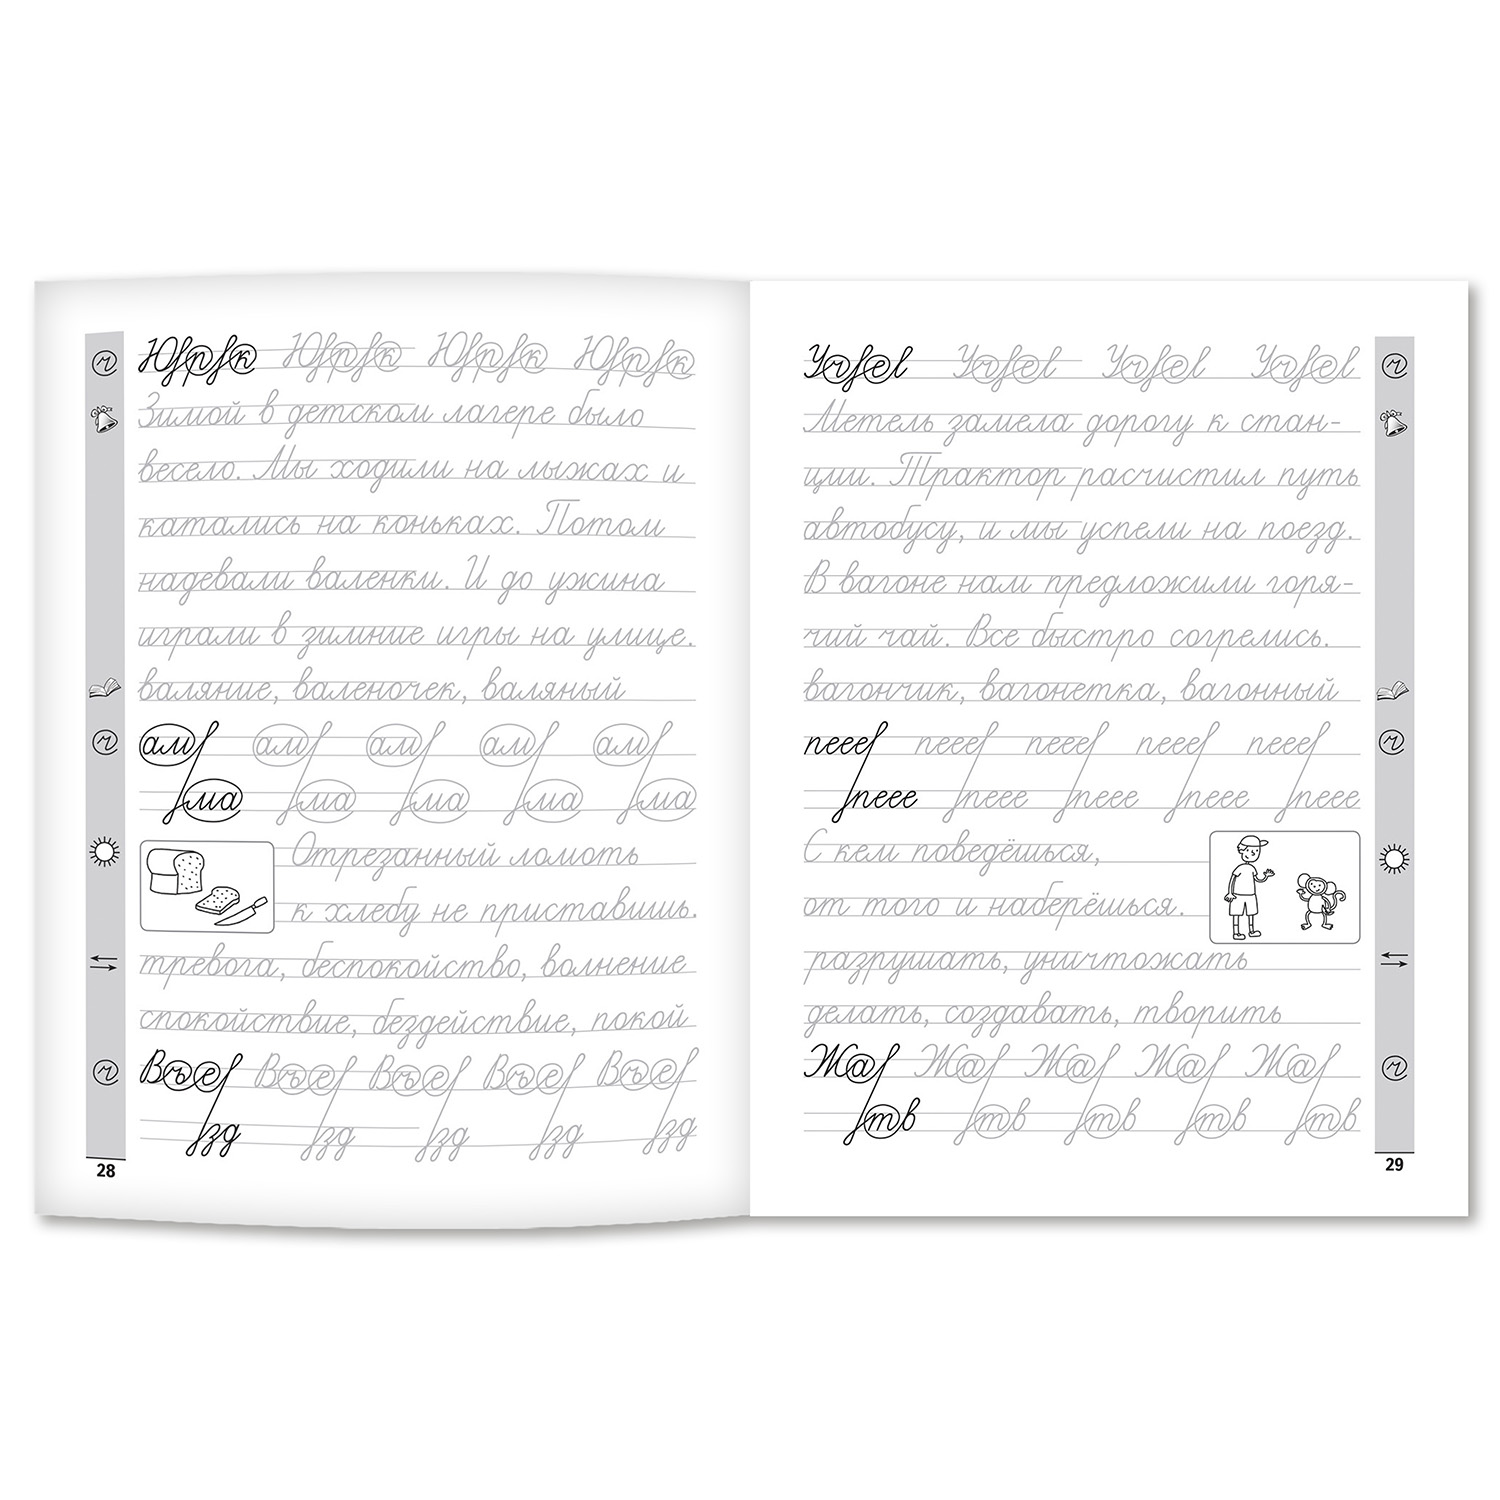 Юрк Юрк Юрк Юрк
Зимой в детском лагере было
весело. Мы ходили на лыжах и
катались на коньках. Потом
надевали валенки. И до ужина
играли в зимние игры на улице.
валяние, валеночек, валяный
ам ам ам ам ам
ма ма ма ма ма
Отрезанный ломоть
к хлебу не приставишь.
тревога, беспокойство, волнение
спокойствие, бездействие, покой
Въе Въе Въе Въе Въе
зд зд зд зд зд
28
Метель замела дорогу к стан-
ции. Трактор расчистил путь
автобусу, и мы успели на поезд.
В вагоне нам предложили горя-
чий чай. Все быстро согрелись.
вагончик, вагонетка, вагонный
пеее пеее пеее пеее пеее
пеее пеее пеее пеее пеее
С кем поведёшься,
от того и наберёшься.
разрушать, уничтожать
делать, создавать, творить
Жа Жа Жа Жа Жа
тв тв тв тв тв
29